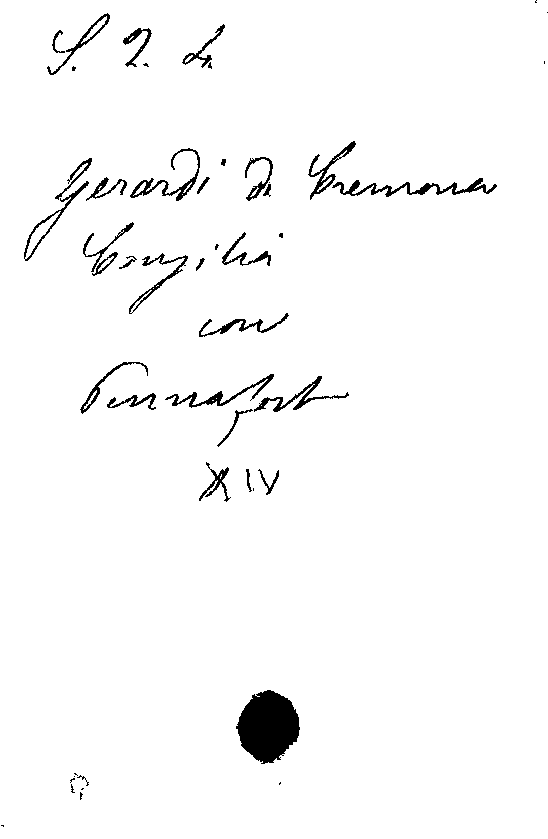 S. 2. L.
Gerardi de Cremona
Consilia
con
Pennafort
XIV